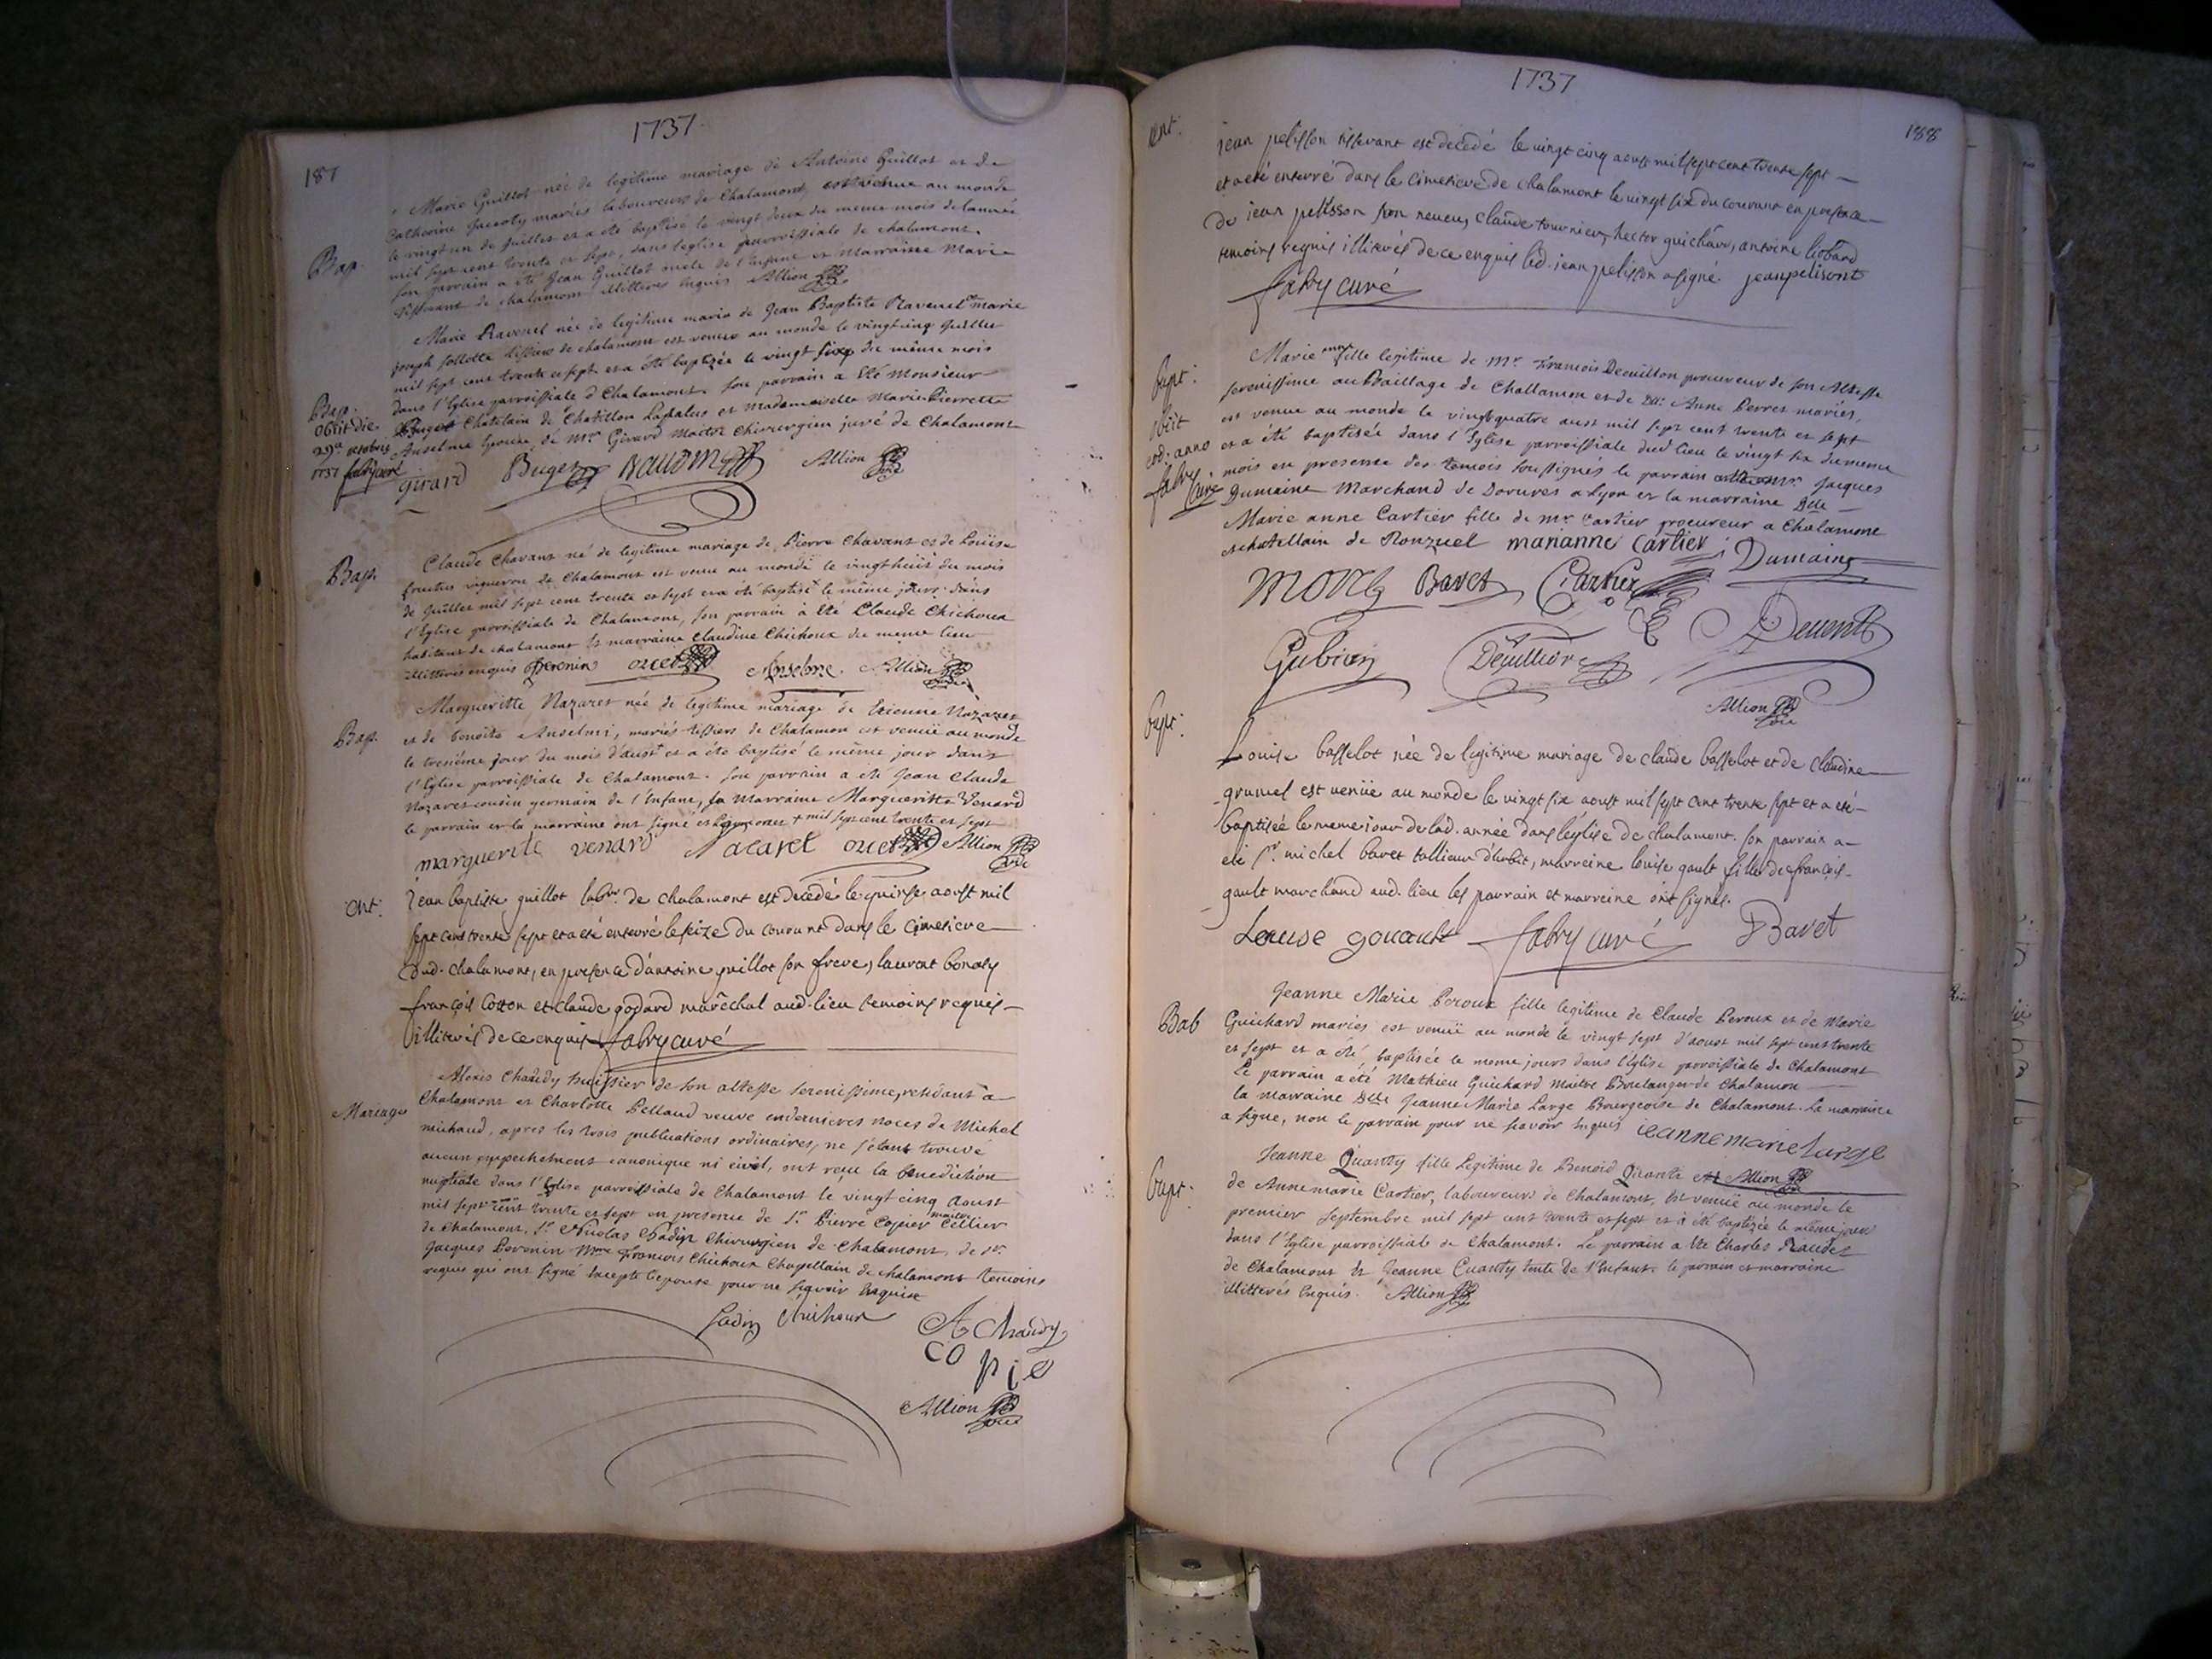 1737
187
Bap.
Marie Guillot née de legitime mariage de Antoine Guillot et de
Catherine Jacoty mariés laboureurs de Chalamont, est venue au monde
le vingt un de juillet et a été baptisé le vingt deux du meme mois de lannée
mil sept cent trente et sept, dans leglise parroissiale de chalamont.
son parrain a été Jean Guillot oncle de l'enfant et Marraine Marie
de chalamont illitteres enquis Allion
Bap.
obiit die
29a octobris
1737 fabry curé
Marie Ravenel née de legitime mariage de Jean Baptiste Ravenel et marie
joseph follotte tissiers de chalamont est venue au monde le vingt cinq juillet
mil sept cent trente et sept et a été baptizée le vingt sixe du même mois
dans l'Eglise parroissiale d Chalamont. son parrain a été Monsieur
Buget Chatelain de Chatillon Lapalus et Mademoiselle Marie Pierrette
Anselme Epouse de Mr Girard Maitre Chirurgien juré de Chalamont
girard Buget Allion
Bap.
Claude Chavant né de legitime mariage de Pierre Chavant et de Louise
fructus vigneron de Chalamont est venu au monde le vingt huit du mois
de juillet mil sept cent trente et sept et a été baptisé le même jour dans
l'Eglise parroissiale de Chalamont, son parrain à été Claude Chichoux
habitant de chalamont et marraine Claudine Chichoux du meme lieu
illitteres enquis Perenin Anselme. Allion
Bap.
Margueritte Nazaret née de legitime mariage de Etienne Nazaret
et de benoite Anselmi, mariés tissiers de Chalamon est venuë au monde
le tresiéme jour du mois d'aust + et a été baptisé le même jour dans
l'Eglise parroissiale de Chalamont. son parrain a été Jean Claude
Nazaret cousin germain de l'Enfant, la Marraine Margueritte Venard
le parrain et la marraine ont signé + mil sept cent trente et sept
marguerite venard Nacaret Allion
ent:
Jean baptiste guillot labr. de chalamont est decedé le quinse aoust mil
sept cent trente sept et a été enterré le seize du courant dans le cimetiere
dud. chalamont, en presence d'antoine guillot son frere, laurent bonaty
françois Cotton et claude godard maréchal aud. lieu temoins requis
illiterés de ce enquis fabry curé
Mariage
Alexis Chaudy huissier de son altesse serenissime, residant à
Chalamont et Charlotte Pelland veuve en dernieres noces de Michel
michaud, apres les trois publications ordinaires, ne s'étant trouvé
aucun empechement canonique ni civil, ont reçu la benediction
nuptiale dans l'Eglise parroissiale de Chalamont le vingt cinq Aoust
mil sept cent trente et sept en presence de Sr Pierre Copier maitre Cellier
de Chalamont, Sr Nicolas Chirurgien de Chalamont, de Sr
Jacques Perenin Mre François Chichoux Chapellain de chalamont temoins
requis qui ont signé excepte l'epouse pour ne sçavoir enquise
Chichoux
A Chaudy
co pie
Allion
1737
188
ent:
jean pelisson tisserant est decedé le vingt cinq aoust mil sept cent trente sept
et a été enterré dans le cimetiere de chalamont le vingt six du courant en presence
de jean pelisson son neveu, claude tournier, hector guichard, antoine liobard
temoins requis illiterés de ce enquis led. jean pelisson a signé jean pelisont
fabry curé
bapt:
obiit
eod. anno
fabry
curé
Marie anne fille legitime de Mr François Decuillon procureur de son Altesse
serenissime au Baillage de Challamon et de Dlle Anne Perret mariés,
est venue au monde le vingt quatre aust mil sept cent trente et sept
et a été baptisée dans l'Eglise parroissiale dud lieu le vingt six du meme
mois en presence des temois soussignes le parrain Mr. Jacques
Dumaine Marchand de Dorures a Lyon et la marraine Dlle
Marie anne Cartier fille de Mr Cartier procureur a Chalamont
et chatellain de Ronzuel marianne Cartier Dumaine
Bavet Cartier
Gubian
Allion
bapt:
Louise basselot née de legitime mariage de claude basselot et de claudine
grumel est venüe au monde le vingt six aoust mil sept cent trente sept et a été
baptisée le meme jour de lad. année dans l'eglise de chalamont. son parrain a
eté Sr. michel bavet tallieur d'habit, marreine louise gault fille de françois
gault marchand aud. lieu les parrain et marreine ont signés.
Leouse gouault fabry curé Bavet
Bab
Jeanne Marie Peroux fille legitime de Claude Peroux et de Marie
Guichard maries est venuë au monde le vingt sept d'aoust mil sept cent trente
et sept et a été baptisée le meme jours dans l'Eglise parroissiale de Chalamont
Le parrain a été Mathieu Guichard Maitre Boulanger de Chalamon
la marraine Dlle Jeanne Marie Large Bourgeoise de Chalamont. La marraine
a signe, non le parrain pour ne scavoir enquis jeanne marie large
bapt.
Jeanne Quanty fille Legitime de Benoid Quanti et Allion
de Anne marie Cartier, laboureurs de Chalamont, est venuë au monde le
premier septembre mil sept cent trente et sept et a été baptizée le même jour
dans l'Eglise parroissiale de Chalamont. Le parrain a été Charles Naudet
de Chalamont et Jeanne Cuanty tente de l'Enfant. le parrain et marraine
illitterés enquis. Allion